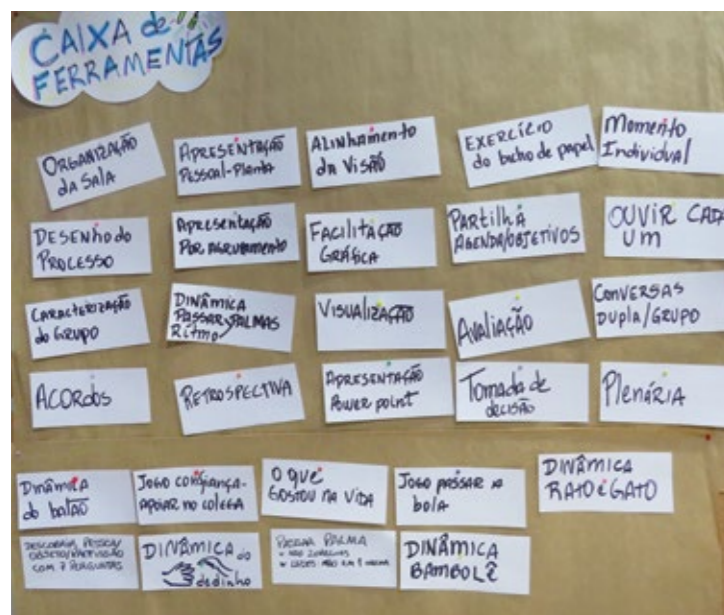 CAIXA de
FERRAMENTAS
ORGANIZAÇÃO
da SALA
APRESENTAÇÃO
PESSOAL-Planta
ALINHAmento
da VISÃO
EXERCÍCIO
do bicho de papel
Momento
Individual
DESENHO do
PROCESSO
APRESENTAÇÃO
POR AGRUPAMENTO
FACILITAÇÃO
GRÁFICA
PARTILHA
AGENDA/OBJETIVOS
OUVIR CADA
UM
CARACTERIZAÇÃO
do GRUPO
DINÂMICA
PASSAR PALMAS
Ritmo
VISUALIZAÇÃO
AVALIAÇÃO
CONVERSAS
DUPLA/GRUPO
ACORDOS
RETROSPECTIVA
APRESENTAÇÃO
POWER POINT
Tomada de
decisão
Plenária
Dinâmica
do balão
JOGO CONFIANÇA-
APOIAR NO COLEGA
O que
GOSTOU NA VIDA
JOGO PASSAR A
bola
DINÂMICA
RATO e GATO
DESCOBRIR PESSOA/
OBJETO/PROFISSÃO
COM 7 PERGUNTAS
DINÂMICA do
dedinho
PASSAR PALMA
DINÂMICA
BAMBOLÊ